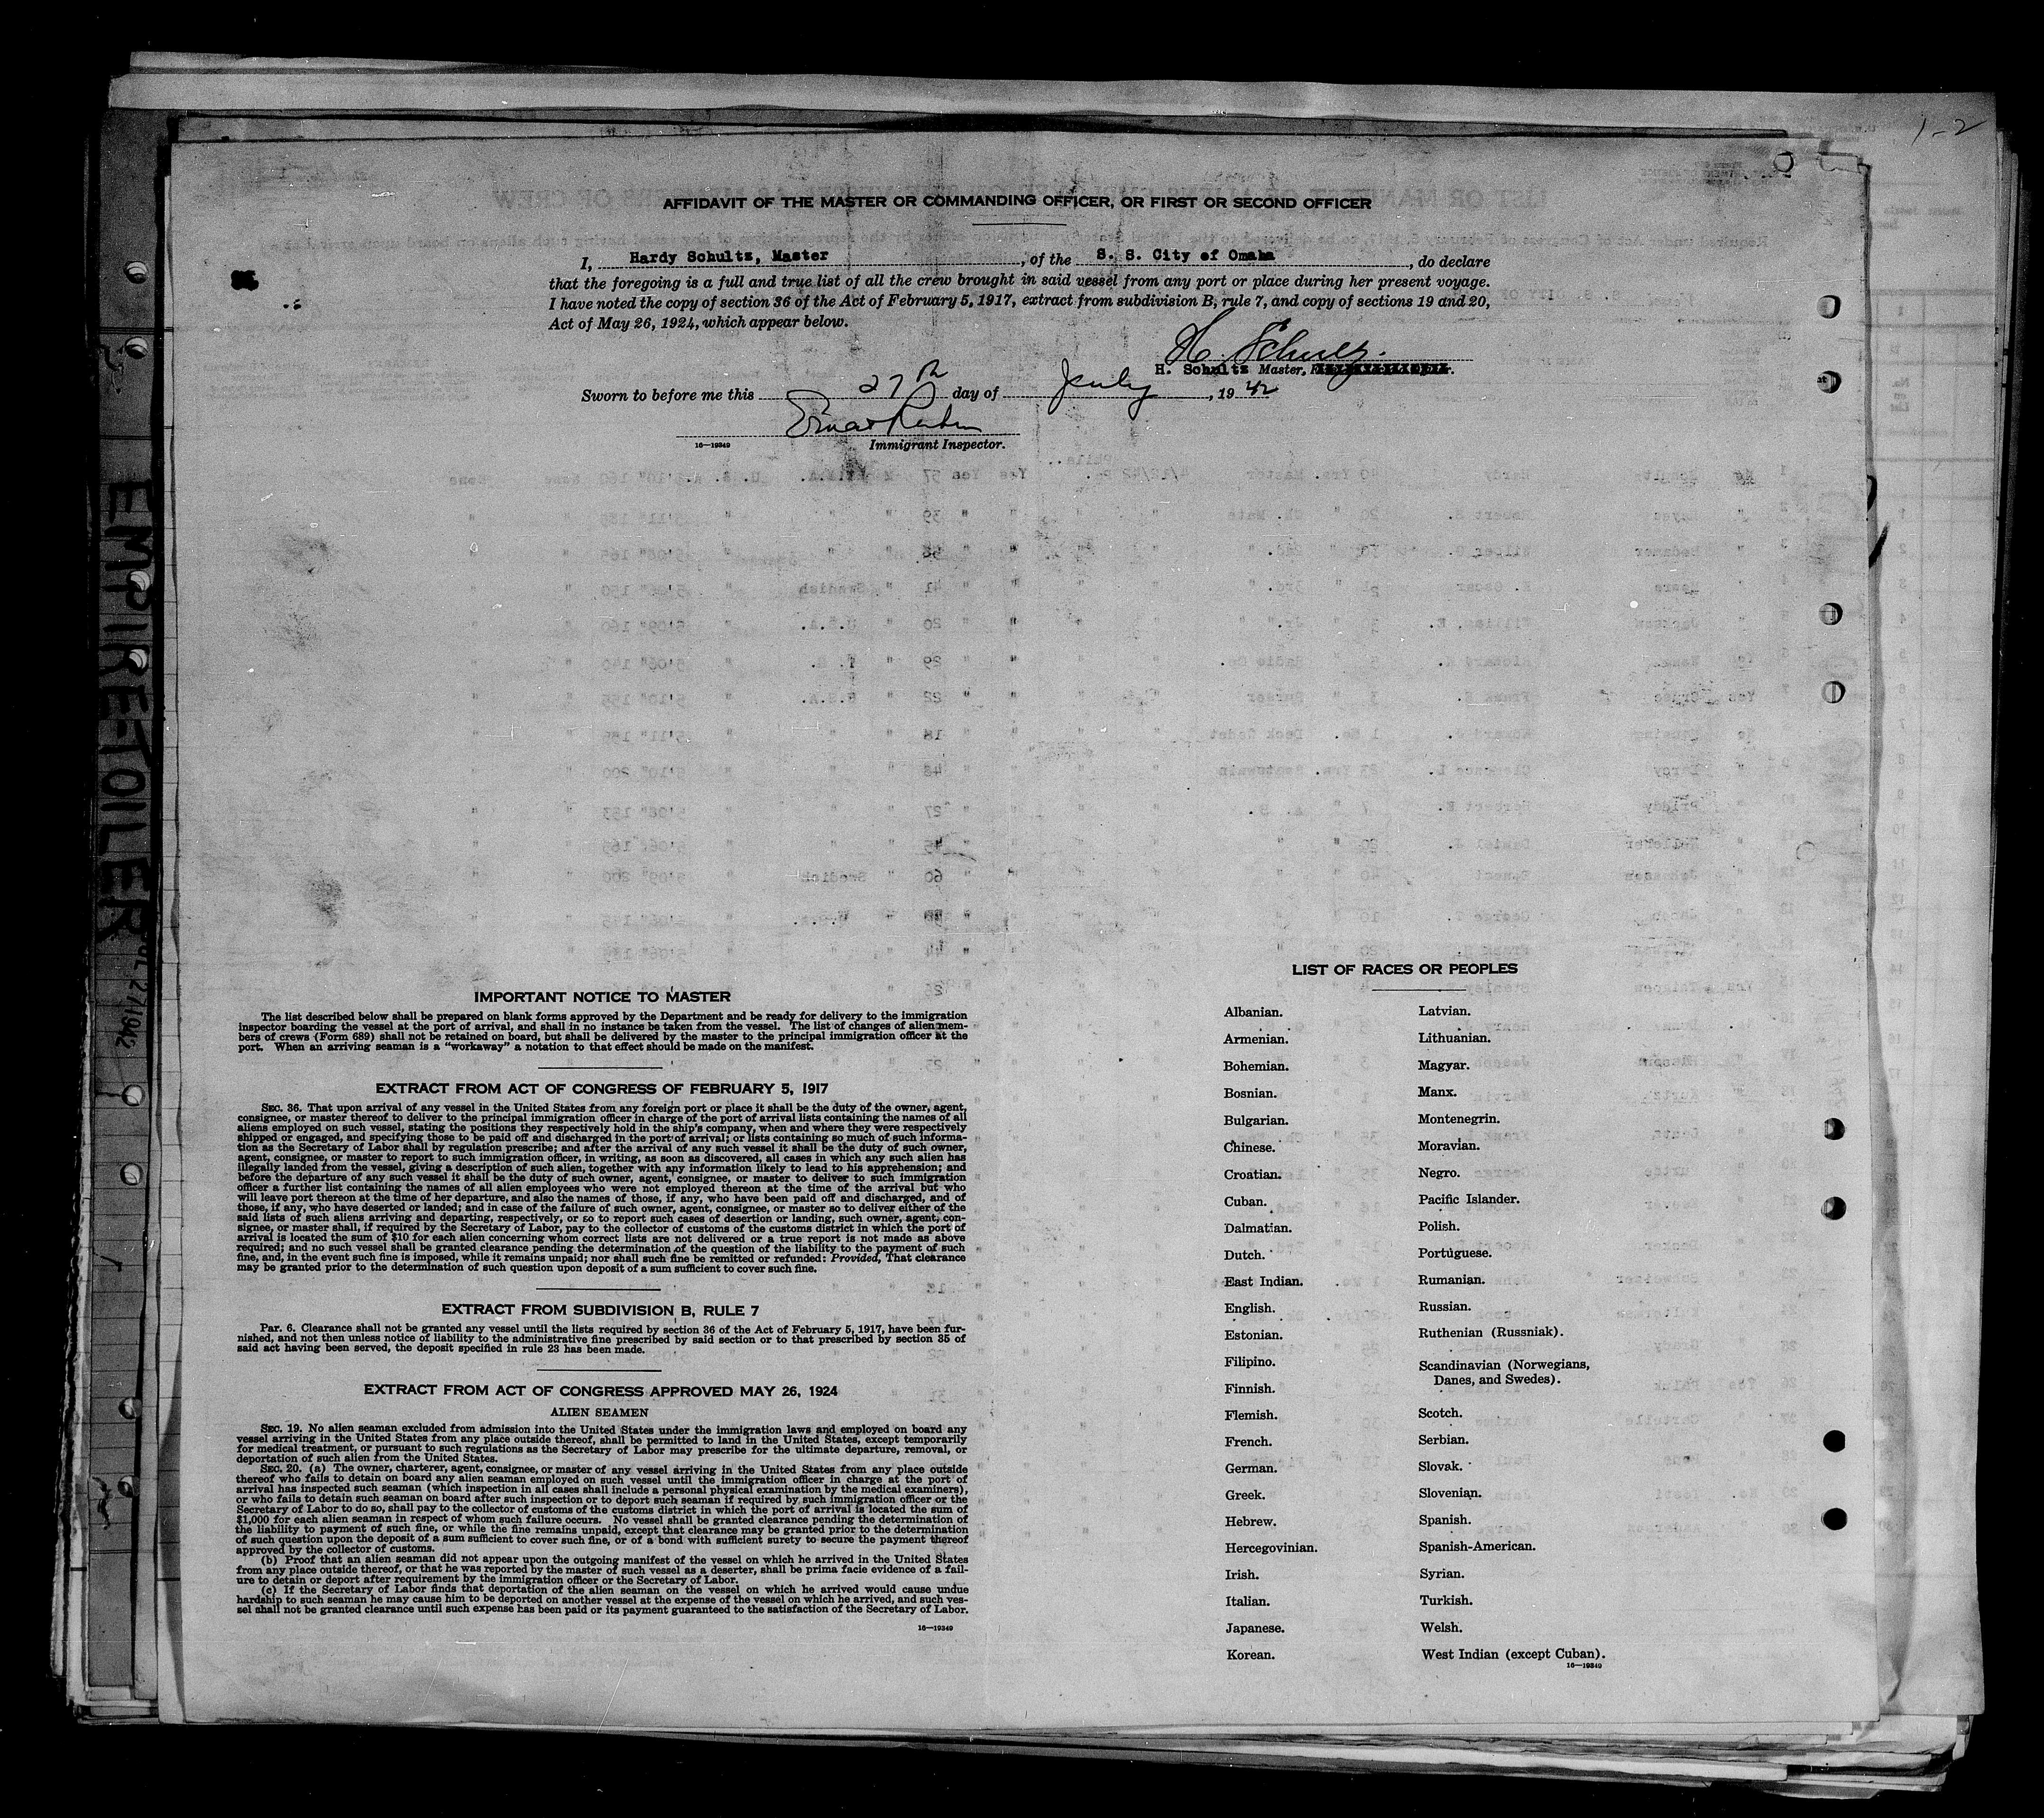 1-2
AFFIDAVIT OF THE MASTER OR COMMANDING OFFICER, OR FIRST OR SECOND OFFICER
I, Hardy Schultz, Master, of the S. S. City of Omaha, do declare
that the foregoing is a full and true list of all the crew brought in said vessel from any port or place during her present voyage.
I have noted the copy of section 36 of the Act of February 5, 1917, extract from subdivision B, rule 7, and copy of sections 19 and 20,
Act of May 26, 1924, which appear below.
H. Schultz.
H. Schultz Master,
Sworn to before me this 27th day of July, 1942
16—19349
Immigrant Inspector.
EMPIRE TOILER
JUL 27 1942
IMPORTANT NOTICE TO MASTER
The list described below shall be prepared on blank forms approved by the Department and be ready for delivery to the immigration
inspector boarding the vessel at the port of arrival, and shall in no instance be taken from the vessel. The list of changes of alien mem-
bers of crews (Form 689) shall not be retained on board, but shall be delivered by the master to the principal immigration officer at the
port. When an arriving seaman is a "workaway" a notation to that effect should be made on the manifest.
EXTRACT FROM ACT OF CONGRESS OF FEBRUARY 5, 1917
SEC. 36. That upon arrival of any vessel in the United States from any foreign port or place it shall be the duty of the owner, agent,
consignee, or master thereof to deliver to the principal immigration officer in charge of the port of arrival lists containing the names of all
aliens employed on such vessel, stating the positions they respectively hold in the ship's company, when and where they were respectively
shipped or engaged, and specifying those to be paid off and discharged in the port of arrival; or lists containing so much of such informa-
tion as the Secretary of Labor shall by regulation prescribe; and after the arrival of any such vessel it shall be the duty of such owner,
agent, consignee, or master to report to such immigration officer, in writing, as soon as discovered, all cases in which any such alien has
illegally landed from the vessel, giving a description of such alien, together with any information likely to lead to his apprehension; and
before the departure of any such vessel it shall be the duty of such owner, agent, consignee, or master to deliver to such immigration
officer a further list containing the names of all alien employees who were not employed thereon at the time of the arrival but who
will leave port thereon at the time of her departure, and also the names of those, if any, who have been paid off and discharged, and of
those, if any, who have deserted or landed; and in case of the failure of such owner, agent, consignee, or master so to deliver either of the
said lists of such aliens arriving and departing, respectively, or so to report such cases of desertion or landing, such owner, agent, con-
signee, or master shall, if required by the Secretary of Labor, pay to the collector of customs of the customs district in which the port of
arrival is located the sum of $10 for each alien concerning whom correct lists are not delivered or a true report is not made as above
required; and no such vessel shall be granted clearance pending the determination of the question of the liability to the payment of such
fine, and, in the event such fine is imposed, while it remains unpaid; nor shall such fine be remitted or refunded: Provided, That clearance
may be granted prior to the determination of such question upon deposit of a sum sufficient to cover such fine.
EXTRACT FROM SUBDIVISION B, RULE 7
Par. 6. Clearance shall not be granted any vessel until the lists required by section 36 of the Act of February 5, 1917, have been fur-
nished, and not then unless notice of liability to the administrative fine prescribed by said section or to that prescribed by section 35 of
said act having been served, the deposit specified in rule 23 has been made.
EXTRACT FROM ACT OF CONGRESS APPROVED MAY 26, 1924
ALIEN SEAMEN
SEC. 19. No alien seaman excluded from admission into the United States under the immigration laws and employed on board any
vessel arriving in the United States from any place outside thereof, shall be permitted to land in the United States, except temporarily
for medical treatment, or pursuant to such regulations as the Secretary of Labor may prescribe for the ultimate departure, removal, or
deportation of such alien from the United States.
SEC. 20. (a) The owner, charterer, agent, consignee, or master of any vessel arriving in the United States from any place outside
thereof who fails to detain on board any alien seaman employed on such vessel until the immigration officer in charge at the port of
arrival has inspected such seaman (which inspection in all cases shall include a personal physical examination by the medical examiners),
or who fails to detain such seaman on board after such inspection or to deport such seaman if required by such immigration officer or the
Secretary of Labor to do so, shall pay to the collector of customs of the customs district in which the port of arrival is located the sum of
$1,000 for each alien seaman in respect of whom such failure occurs. No vessel shall be granted clearance pending the determination of
the liability to payment of such fine, or while the fine remains unpaid, except that clearance may be granted prior to the determination
of such question upon the deposit of a sum sufficient to cover such fine, or of a bond with sufficient surety to secure the payment thereof
approved by the collector of customs.
(b) Proof that an alien seaman did not appear upon the outgoing manifest of the vessel on which he arrived in the United States
from any place outside thereof, or that he was reported by the master of such vessel as a deserter, shall be prima facie evidence of a fail-
ure to detain or deport after requirement by the immigration officer or the Secretary of Labor.
(c) If the Secretary of Labor finds that deportation of the alien seaman on the vessel on which he arrived would cause undue
hardship to such seaman he may cause him to be deported on another vessel at the expense of the vessel on which he arrived, and such ves-
sel shall not be granted clearance until such expense has been paid or its payment guaranteed to the satisfaction of the Secretary of Labor.
16—19349
LIST OF RACES OR PEOPLES
Albanian.
Armenian.
Bohemian.
Bosnian.
Bulgarian.
Chinese.
Croatian.
Cuban.
Dalmatian.
Dutch.
East Indian.
English.
Estonian.
Filipino.
Finnish.
Flemish.
French.
German.
Greek.
Hebrew.
Hercegovinian.
Irish.
Italian.
Japanese.
Korean.
Latvian.
Lithuanian.
Magyar.
Manx.
Montenegrin.
Moravian.
Negro.
Pacific Islander.
Polish.
Portuguese.
Rumanian.
Russian.
Ruthenian (Russniak).
Scandinavian (Norwegians,
Danes, and Swedes).
Scotch.
Serbian.
Slovak.
Slovenian.
Spanish.
Spanish-American.
Syrian.
Turkish.
Welsh.
West Indian (except Cuban).
16—19349